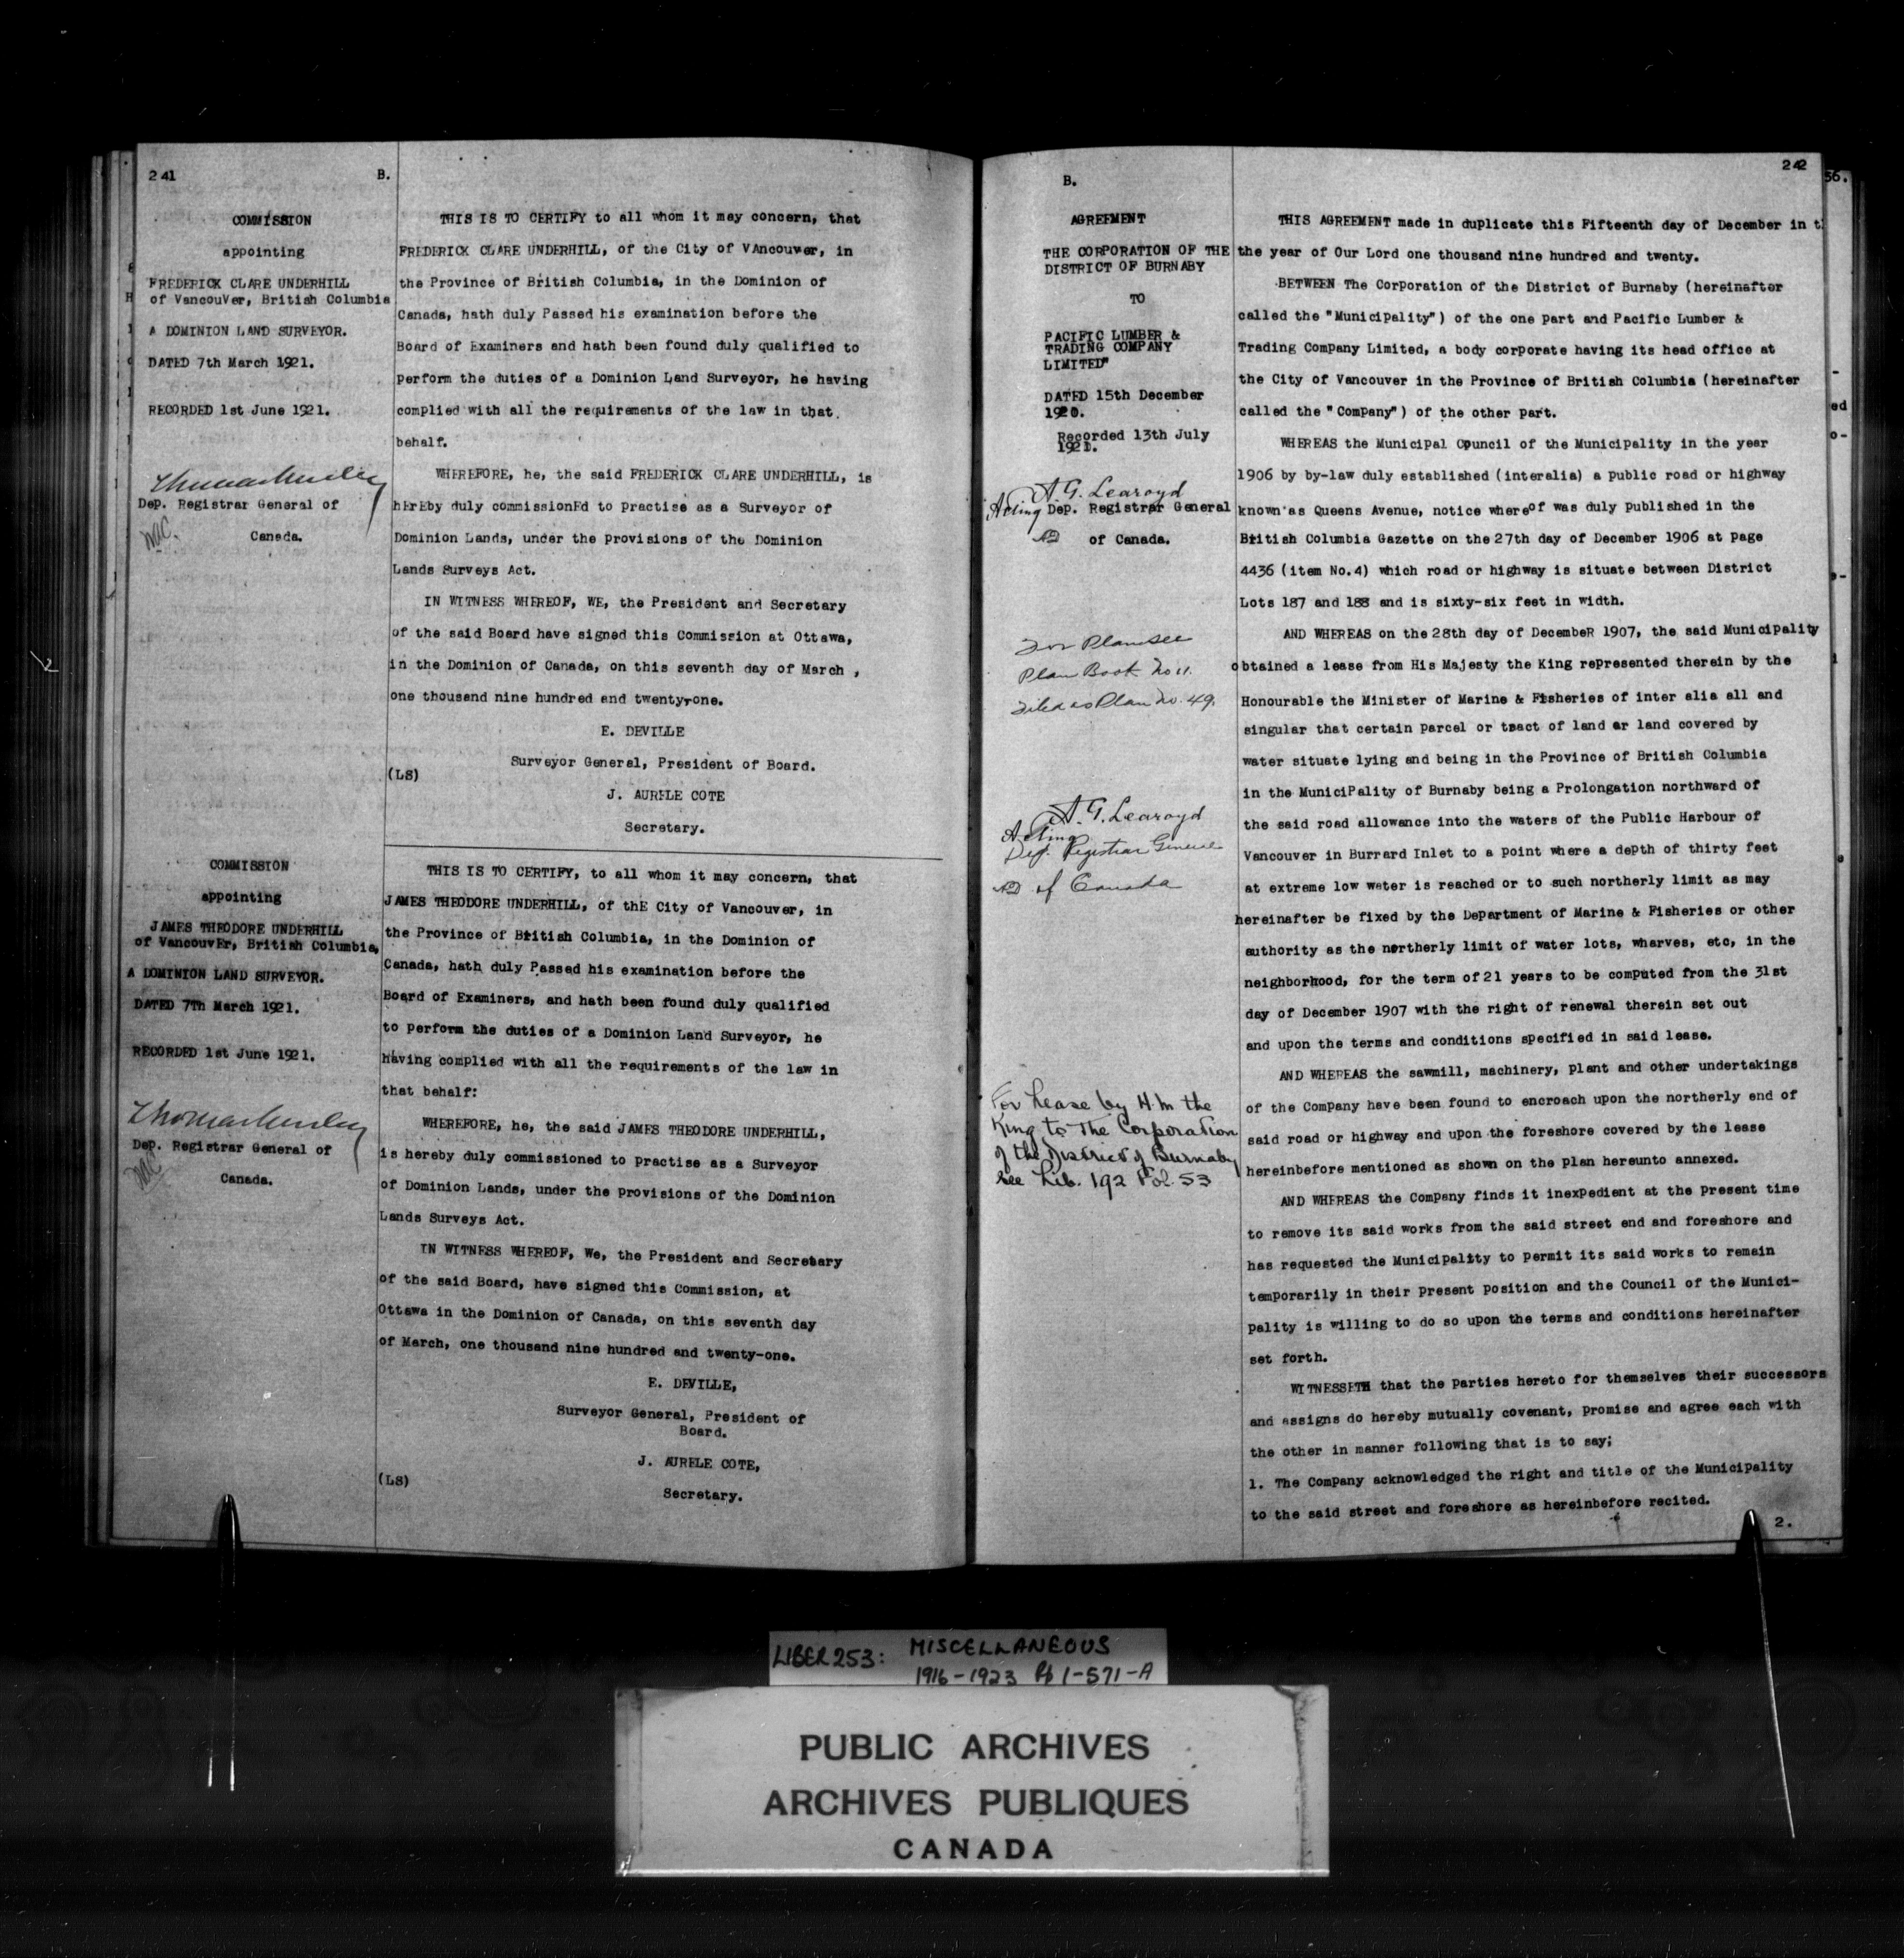 241
B.
COMMISSION
appointing
FREDERICK CLARE UNDERHILL
of VancouVer, British Columbia
A DOMINION LAND SURVEYOR.
DATED 7th March 1921.
RECORDED 1st June 1921.
Dep. Registrar General of
Canada.
THIS IS TO CERTIFY to all whom it may concern, that
FREDERICK CLARE UNDERHILL, of the City of VAncouver, in
the Province of British Columbia, in the Dominion of
Canada, hath duly Passed his examination before the
Board of Examiners and hath been found duly qualified to
perform the duties of a Dominion Land Surveyor, he having
complied with all the requirements of the law in that
behalf.
WHEREFORE, he, the said FREDERICK CLARE UNDERHILL, is
hErEby duly commissionEd to practise as a Surveyor of
Dominion Lands, under the provisions of the Dominion
Lands Surveys Act.
IN WITNESS WHEREOF, WE, the President and Secretary
of the said Board have signed this Commission at Ottawa,
in the Dominion of Canada, on this seventh day of March ,
one thousand nine hundred and twenty-one.
E. DEVILLE
Surveyor General, President of Board.
(LS)
J. AURELE COTE
Secretary.
COMMISSION
appointing
JAMES THEODORE UNDERHILL
of VancouvEr, British Columbia,
A DOMINION LAND SURVEYOR.
DATED 7Th March 1921.
RECORDED 1st June 1921.
Dep. Registrar General of
Canada.
THIS IS TO CERTIFY, to all whom it may concern, that
JAMES THEODORE UNDERHILL, of thE City of Vancouver, in
the Province of British Columbia, in the Dominion of
Canada, hath duly Passed his examination before the
Board of Examiners, and hath been found duly qualified
to perform the duties of a Dominion Land Surveyor, he
having complied with all the requirements of the law in
that behalf:
WHEREFORE, he, the said JAMES THEODORE UNDERHILL,
is hereby duly commissioned to practise as a Surveyor
of Dominion Lands, under the provisions of the Dominion
Lands Surveys Act.
IN WITNESS WHEREOF, We, the President and Secretary
of the said Board, have signed this Commission, at
Ottawa in the Dominion of Canada, on this seventh day
of March, one thousand nine hundred and twenty-one.
E. DEVILLE,
Surveyor General, President of
Board.
J. AURELE COTE,
(LS)
Secretary.
242
B.
AGREEMENT
THE CORPORATION OF THE
DISTRICT OF BURNABY
TO
PACIFIC LUMBER &
TRADING COMPANY
LIMITED"
DATED 15th December
1920.
Recorded 13th July
1921.
A. G. Learoyd
Acting Dep. Registrar General
of Canada.
For Plan see
Plan Book No 11.
Filed as Plan No. 49.
A. G. Learoyd
Acting
Dep. Registrar General
of Canada
For Lease by H.M the
King to The Corporation
of the District of Burnaby
see Lib. 192 Fol. 53
THIS AGREEMENT made in duplicate this Fifteenth day of December in
the year of Our Lord one thousand nine hundred and twenty.
BETWEEN The Corporation of the District of Burnaby (hereinafter
called the "Municipality") of the one part and Pacific Lumber &
Trading Company Limited, a body corporate having its head office at
the City of Vancouver in the Province of British Columbia (hereinafter
called the "Company") of the other part.
WHEREAS the Municipal Council of the Municipality in the year
1906 by by-law duly established (interalia) a public road or highway
known as Queens Avenue, notice whereof was duly published in the
British Columbia Gazette on the 27th day of December 1906 at page
4436 (item No.4) which road or highway is situate between District
Lots 187 and 188 and is sixty-six feet in width.
AND WHEREAS on the 28th day of DecembeR 1907, the said Municipality
obtained a lease from His Majesty the King represented therein by the
Honourable the Minister of Marine & Fisheries of inter alia all and
singular that certain parcel or tract of land or land covered by
water situate lying and being in the Province of British Columbia
in the MuniciPality of Burnaby being a Prolongation northward of
the said road allowance into the waters of the Public Harbour of
Vancouver in Burrard Inlet to a point where a depth of thirty feet
at extreme low water is reached or to such northerly limit as may
hereinafter be fixed by the Department of Marine & Fisheries or other
authority as the northerly limit of water lots, wharves, etc, in the
neighborhood, for the term of 21 years to be computed from the 31st
day of December 1907 with the right of renewal therein set out
and upon the terms and conditions specified in said lease.
AND WHEREAS the sawmill, machinery, plant and other undertakings
of the Company have been found to encroach upon the northerly end of
said road or highway and upon the foreshore covered by the lease
hereinbefore mentioned as shown on the plan hereunto annexed.
AND WHEREAS the Company finds it inexpedient at the present time
to remove its said works from the said street end and foreshore and
has requested the Municipality to permit its said works to remain
temporarily in their present position and the Council of the Munici-
pality is willing to do so upon the terms and conditions hereinafter
set forth.
WITNESSETH that the parties hereto for themselves their successors
and assigns do hereby mutually covenant, promise and agree each with
the other in manner following that is to say;
1. The Company acknowledged the right and title of the Municipality
to the said street and foreshore as hereinbefore recited.
2.
56.
LIBER 253: MISCELLANEOUS
1916-1923 Pp 1-571-A
PUBLIC ARCHIVES
ARCHIVES PUBLIQUES
CANADA